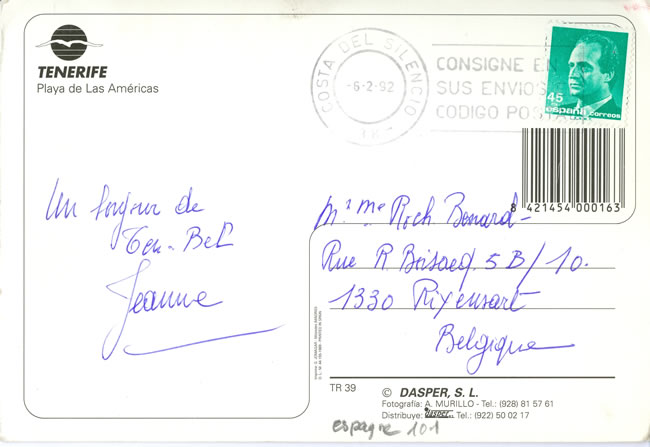 TENERIFE
Playa de Las Américas
COSTA DEL SILENCIO
-6-2-92
CONSIGNE EN
SUS ENVIOS
CODIGO POSTAL
45
españa correos
8 421454 000163
Un bonjour de
Ten-Bel
Jeanne
Mr Me Roch Bonard
Rue R. Boisacq 5B/10.
1330 Rixensart
Belgique
TR 39
© DASPER, S. L.
Fotografía: A. MURILLO - Tel.: (928) 81 57 61
Distribuye: DASPER S.L. Tel.: (922) 50 02 17
espagne 101